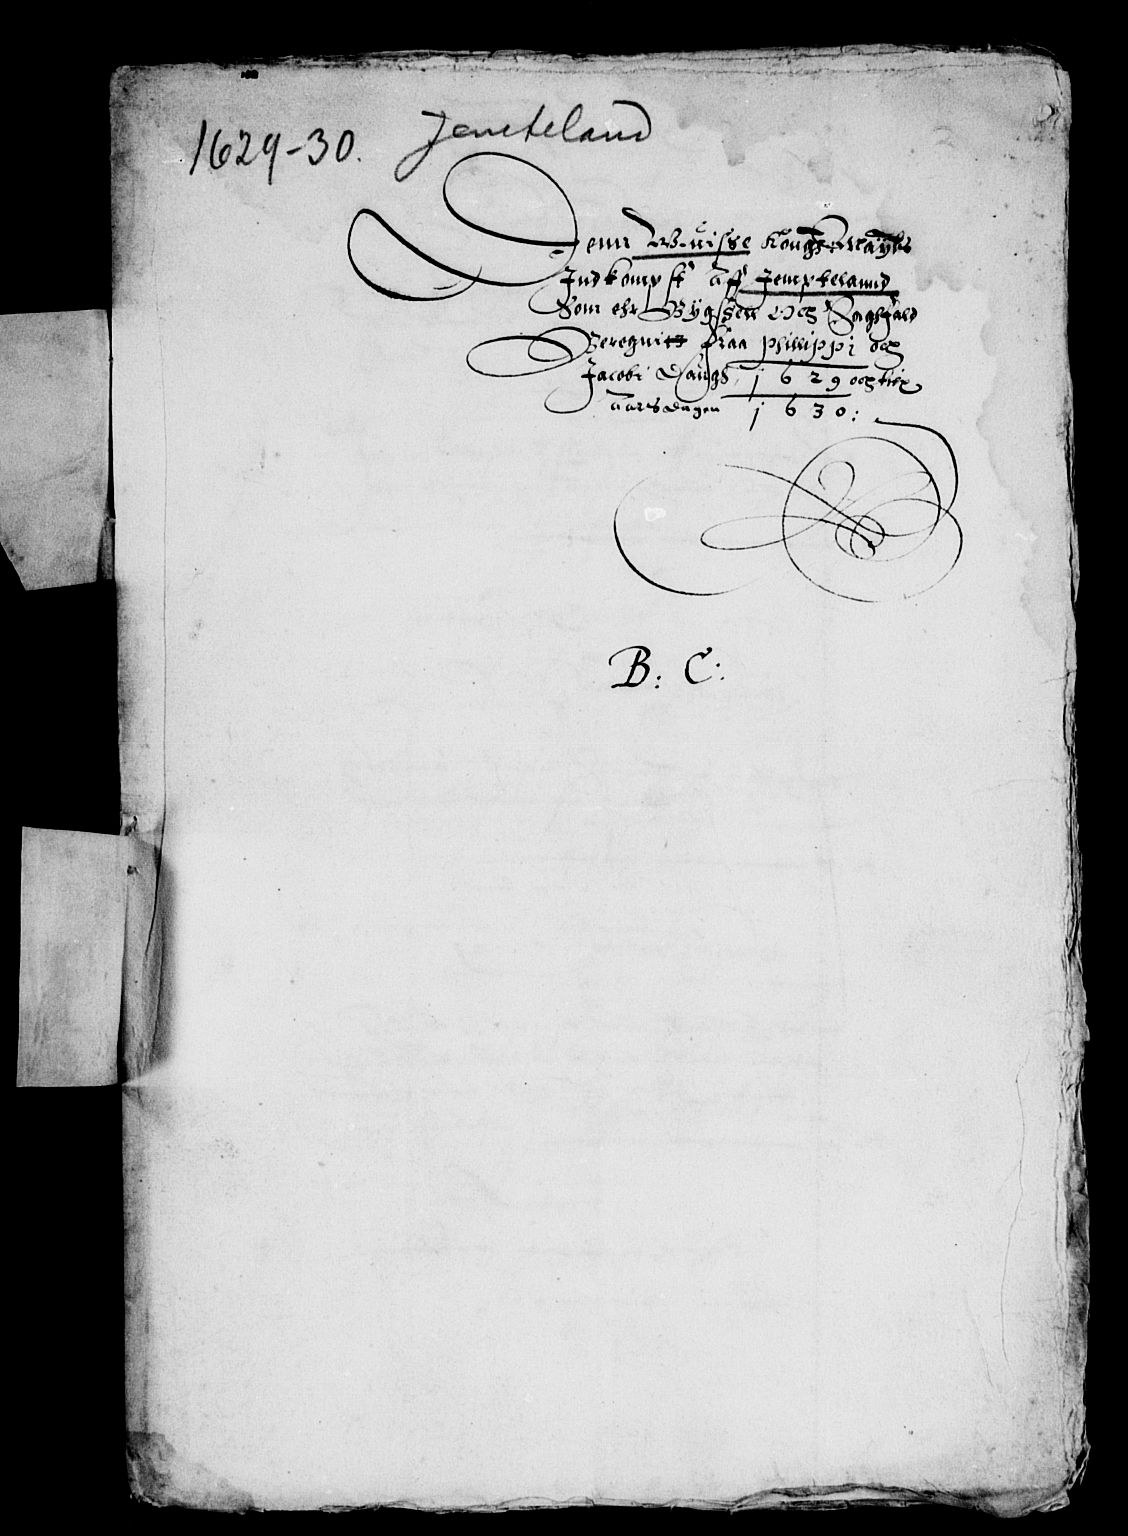 1629-30. Jemteland
Denn Wuisse Kong: Maÿts
Indkompst Aff Jempteland
Som ehr Bygsell Och Sagefald
Beregnitt fraa Phillippi och
Jacobi Daugh, 1629 och till
Aarsdagen 1630:
B: C: